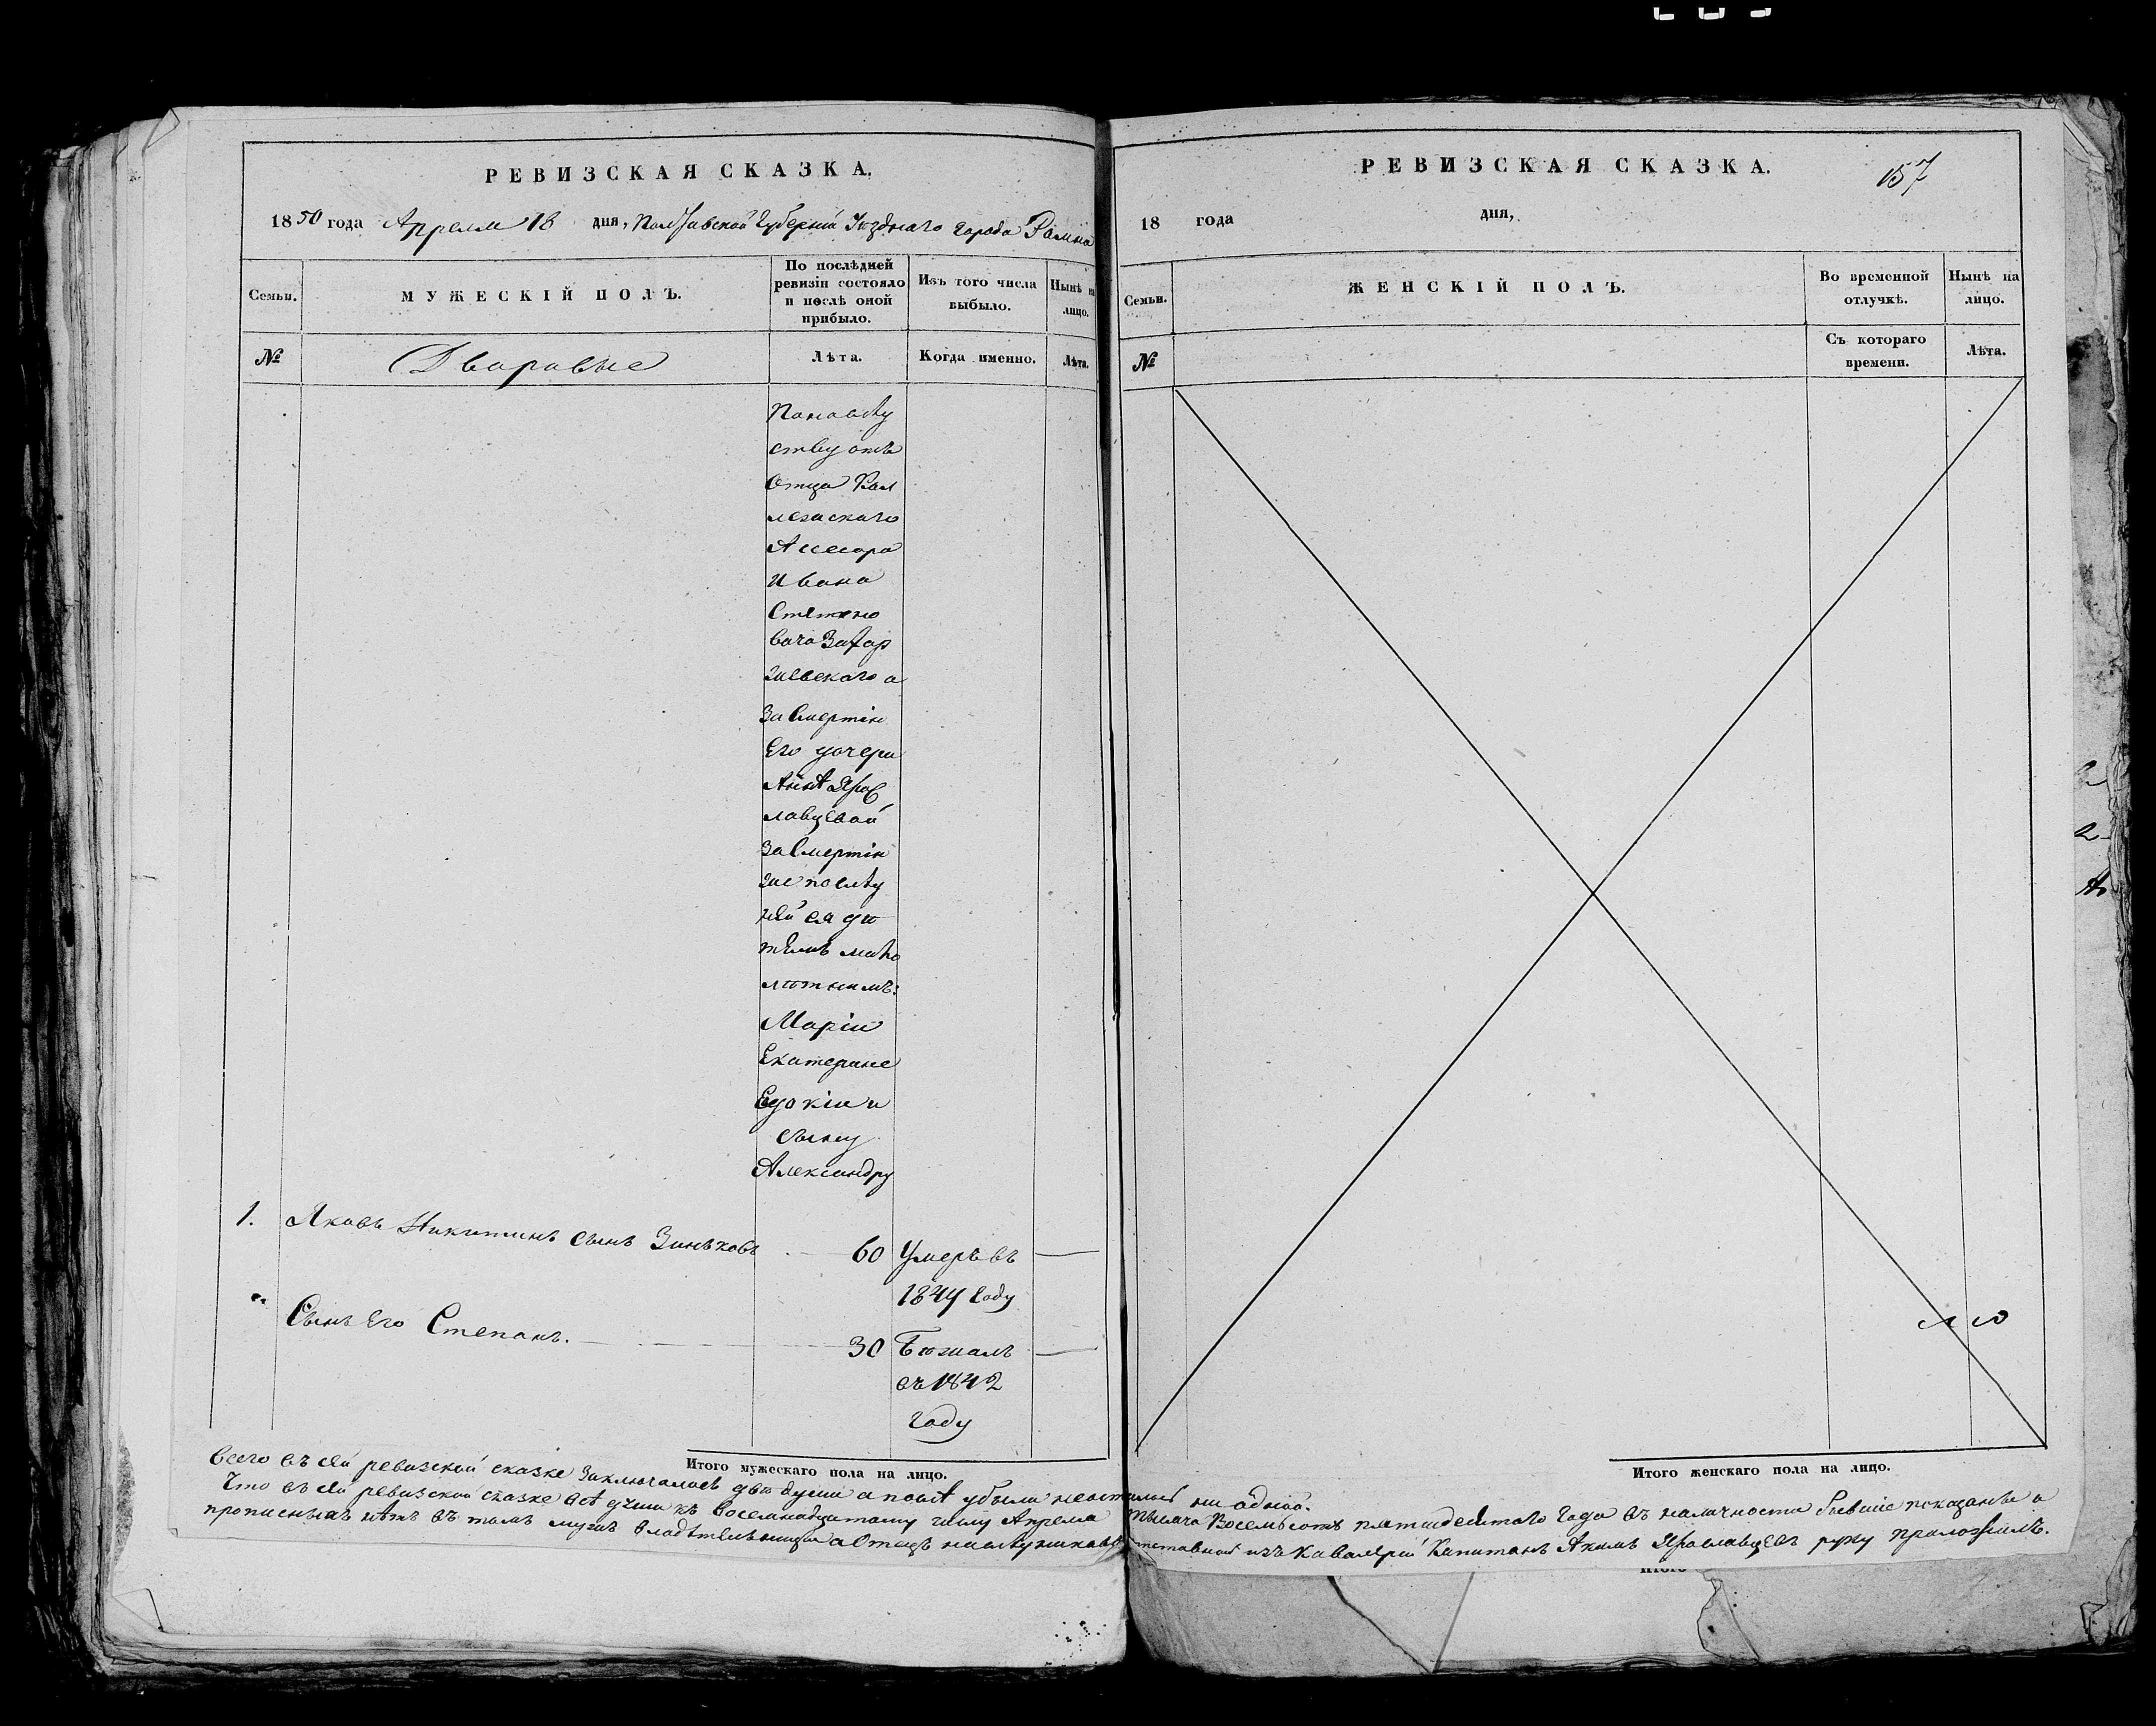 РЕВИЗСКАЯ СКАЗКА.
1850 года Апреля 18 дня, Полтавской Губернии Уезднаго города Ромна
Семьи.
МУЖЕСКІЙ ПОЛЪ.
По послѣдней ревизіи состояло и послѣ оной прибыло.
Изъ того числа выбыло.
Нынѣ на лицо.
№
Дваровые
Лѣта.
Когда именно.
Лѣта.
Понаслѣду
ству отъ
Отца Кол
лежскаго
Ассесора
Ивана
Степано
вича Захор
жевскаго а
За Смертію
Его дочери
Аннѣ Яросл
лавцевой
За Смертію
же послѣд
ней ея дѣ
тямъ мало
лѣтнимъ:
Маріи
Екатерине
Евдокіи и
сыну
Александру
1. Яковъ Никитинъ сынъ Зинѣковъ 60 Умеръ въ —
1844 Году
" Сынъ Его Степанъ. 30 Бѣжалъ —
въ 1842
Году
Итого мужескаго пола на лицо.
РЕВИЗСКАЯ СКАЗКА.
157
18 года дня,
Семьи.
ЖЕНСКІЙ ПОЛЪ.
Во временной отлучкѣ.
Нынѣ на лицо.
№
Съ котораго времени.
Лѣта.
Итого женскаго пола на лицо.
Всего въ сей ревизской сказке Заключалось двѣ души а послѣ убыли неосталось ни одной.
Что въ сей ревизской сказке всѣ души къ Восемнадцатому числу Апреля Тысяча Восемьсотъ пятидесятаго Года въ наличности бывшіе показаны а
прописныхъ нѣтъ въ томъ мужъ владѣтельницы а Отецъ наслѣдниковъ отставной изъ Кавалеріи Капитанъ Акимъ Ярославцевъ руку приложилъ.